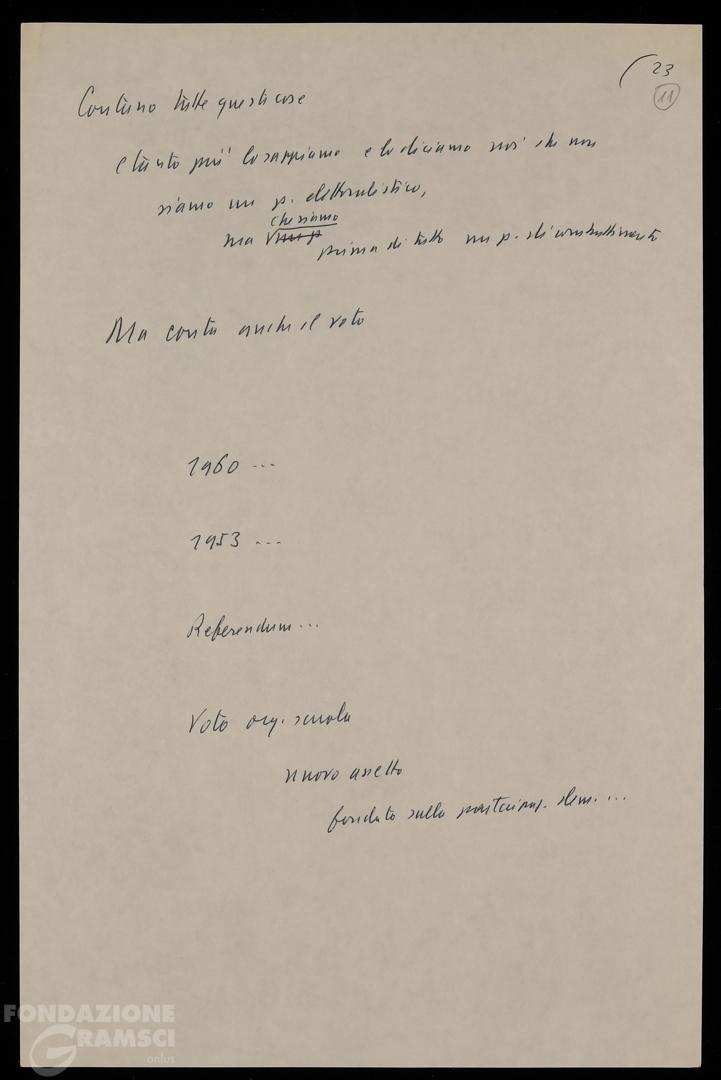 23
11
Contano tutte queste cose
e tanto più lo sappiamo e lo diciamo noi che non
siamo un p. elettoralistico,
che siamo
ma un p prima di tutto un p. di combattimento
Ma conta anche il voto
1960 ---
1953 ---
Referendum ...
Voto org. scuola
nuovo assetto
fondato sulla partecipaz. dem. ...
FONDAZIONE
GRAMSCI
onlus